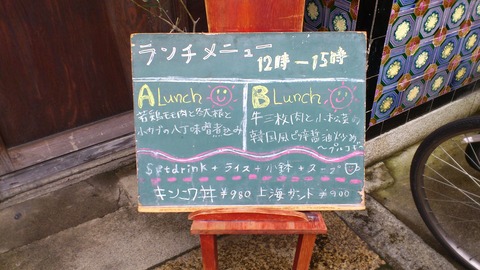 ランチメニュー 12時ー15時
A Lunch
若鶏モモ肉と大根と
小カブの八丁味噌煮込み
B Lunch
牛三枚肉と小松菜の
韓国風ピリ辛醤油炒め
〜プルコギ
Set drink + ライス + 小鉢 + スープ
キンツワ丼 ¥980 上海サンド ¥900